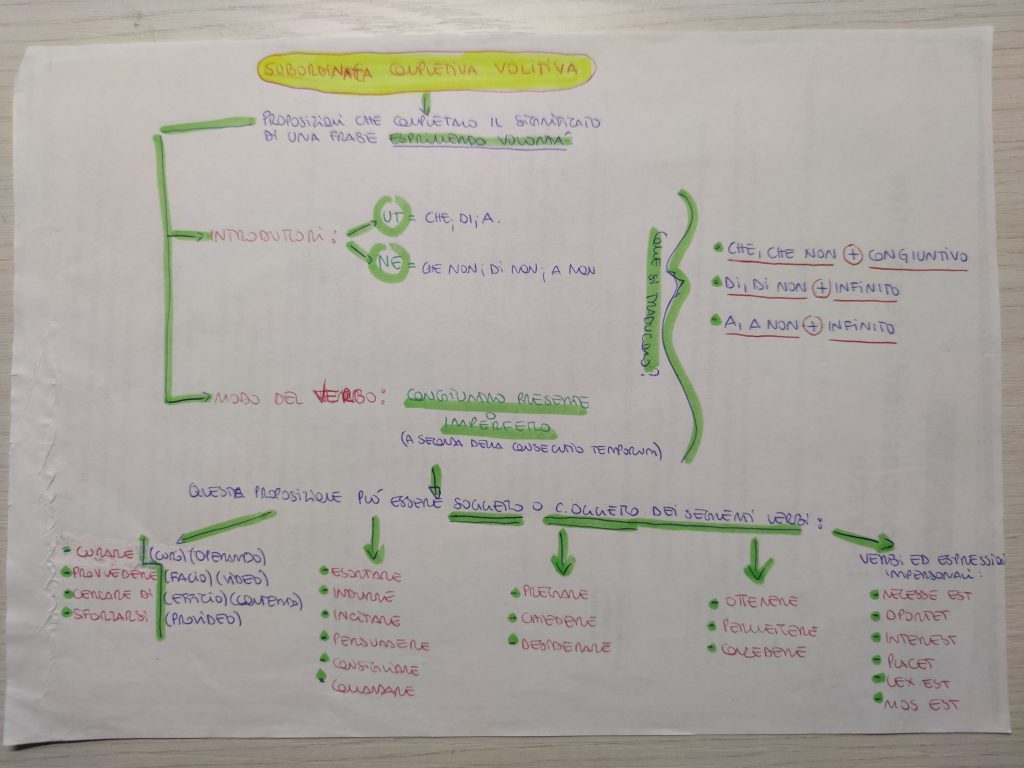 SUBORDINATA COMPLETIVA VOLITIVA
PROPOSIZIONI CHE COMPLETANO IL SIGNIFICATO
DI UNA FRASE ESPRIMENDO VOLONTÀ.
INTRODUTTORI:
UT = CHE, DI, A.
NE = CHE NON, DI NON, A NON
MODO DEL VERBO: CONGIUNTIVO PRESENTE
O
IMPERFETTO
(A SECONDA DELLA CONSECUTIO TEMPORUM)
COME SI TRADUCONO?
CHE, CHE NON + CONGIUNTIVO
DI, DI NON + INFINITO
A, A NON + INFINITO
QUESTA PROPOSIZIONE PUÒ ESSERE SOGGETTO O C. OGGETTO DEI SEGUENTI VERBI:
- CURARE (CURO) (OPERAM DO)
- PROVVEDERE (FACIO) (VIDEO)
- CERCARE DI (EFFICIO) (CONTENDO)
- SFORZARSI (PROVIDEO)
- ESORTARE
- INDURRE
- INCITARE
- PERSUADERE
- CONSIGLIARE
- COMANDARE
- PREGARE
- CHIEDERE
- DESIDERARE
- OTTENERE
- PERMETTERE
- CONCEDERE
VERBI ED ESPRESSIONI
IMPERSONALI:
- NECESSE EST
- OPORTET
- INTEREST
- PLACET
- LEX EST
- MOS EST